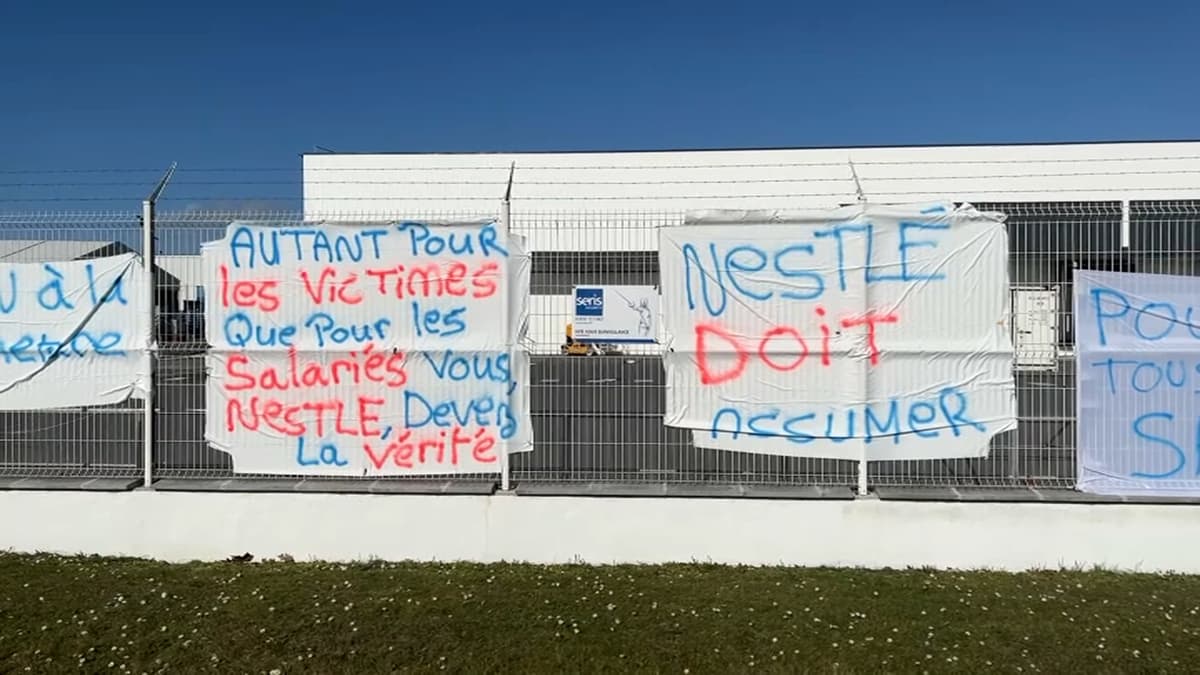 à la
AUTANT POUR
les VicTimes
Que Pour les
Salariés Vous,
NESTLE, Devez
La vérité
seris
NESTLÉ
DOiT
ASSUMER
TOUS